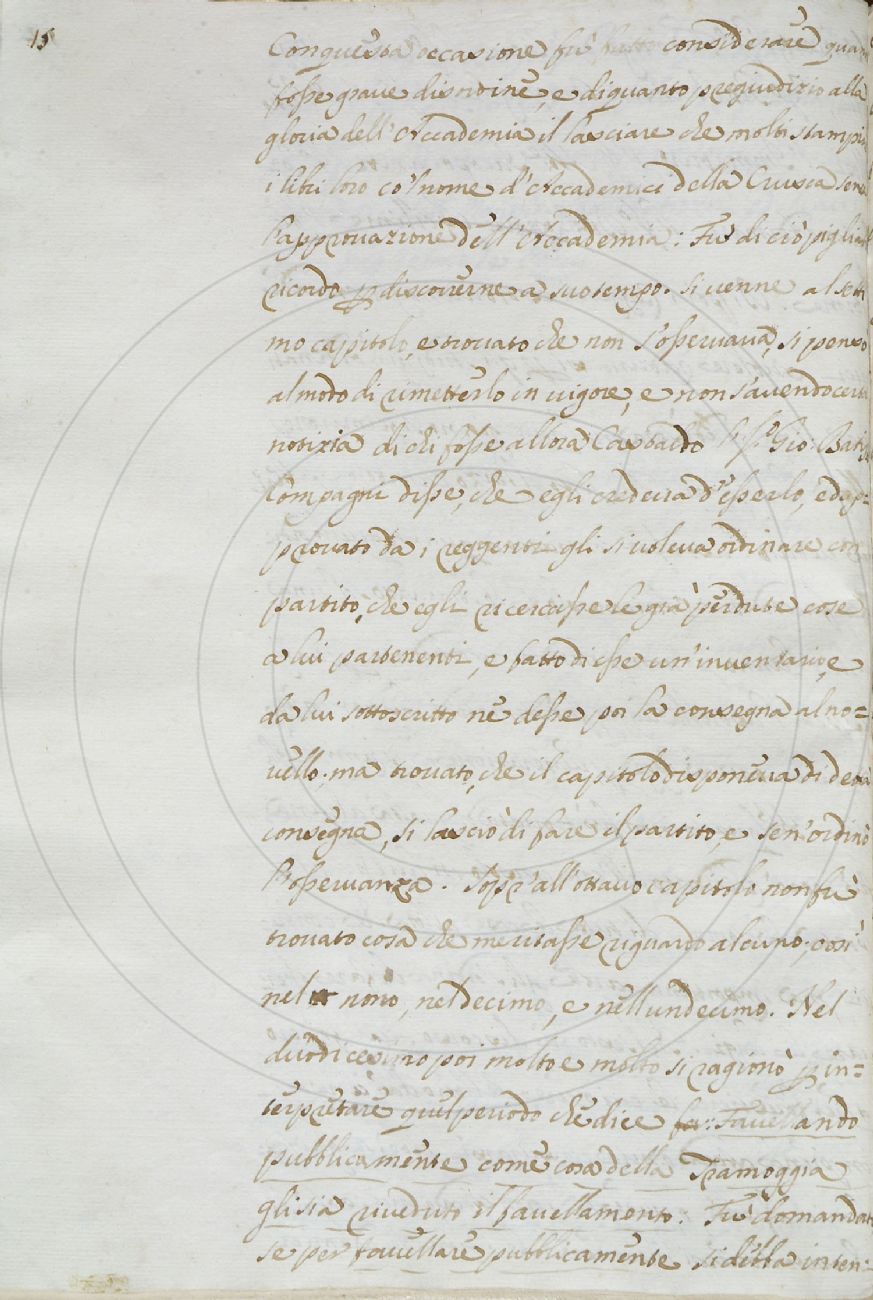 15
Con questa occasione fù fatto considerare quan
fosse grave disordine, e di quanto pregiudizio alla
gloria dell'Accademia il lasciare che molti stampin
i libri loro co'l nome d'Accademici della Crusca senz
l'approvazione dell'Accademia: Fù di ciò piglia
ricordo p discorrerne a suo tempo. Si venne al setti
mo capitolo, e trovato che non s'osservava, si pensò
al modo di rimetterlo in vigore, e non s'avendo certa
notizia di chi fosse allora Castaldo Gio: Batis
Compagni disse, che egli credeva d'esserlo, ed ap=
provato da i reggenti gli si voleva ordinare con
partito, che egli ricercasse le già perdute cose
a lui partenenti, e fatto di esse un'inventario, e
da lui sottoscritto ne desse poi la consegna al no=
vello; ma trovato, che il capitolo disponeva di detta
consegna, si lasciò di fare il partito, e sen'ordinò
l'osservanza. Sopr'all'ottavo capitolo non fù
trovato cosa che meritasse riguardo alcuno; così
nel nono, nel decimo, e nell'undecimo. Nel
duodicesimo poi molto e molto si ragionò p in=
terpretare quel periodo che dice Favellando
pubblicamente come cosa della Tramoggia
gli sia riveduto il favellamento: Fù domandat
se per favellare pubblicamente si debba inten=